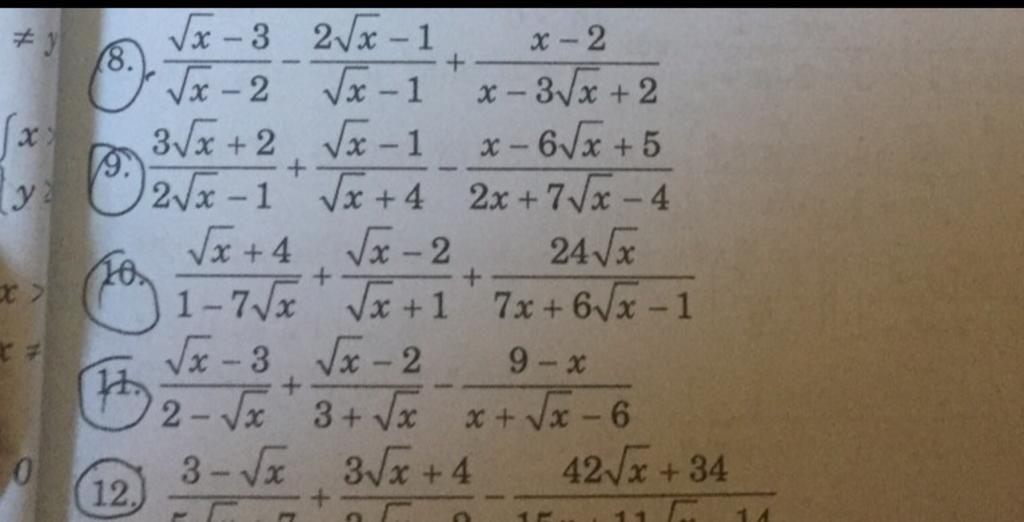 ≠ y
8. (√x − 3)/(√x − 2) − (2√x − 1)/(√x − 1) + (x − 2)/(x − 3√x + 2)
{x >
9. (3√x + 2)/(2√x − 1) + (√x − 1)/(√x + 4) − (x − 6√x + 5)/(2x + 7√x − 4)
{y ≥
10. (√x + 4)/(1 − 7√x) + (√x − 2)/(√x + 1) + 24√x/(7x + 6√x − 1)
x >
11. (√x − 3)/(2 − √x) + (√x − 2)/(3 + √x) − (9 − x)/(x + √x − 6)
x ≠
0
12. (3 − √x)/ + (3√x + 4)/ − (42√x + 34)/